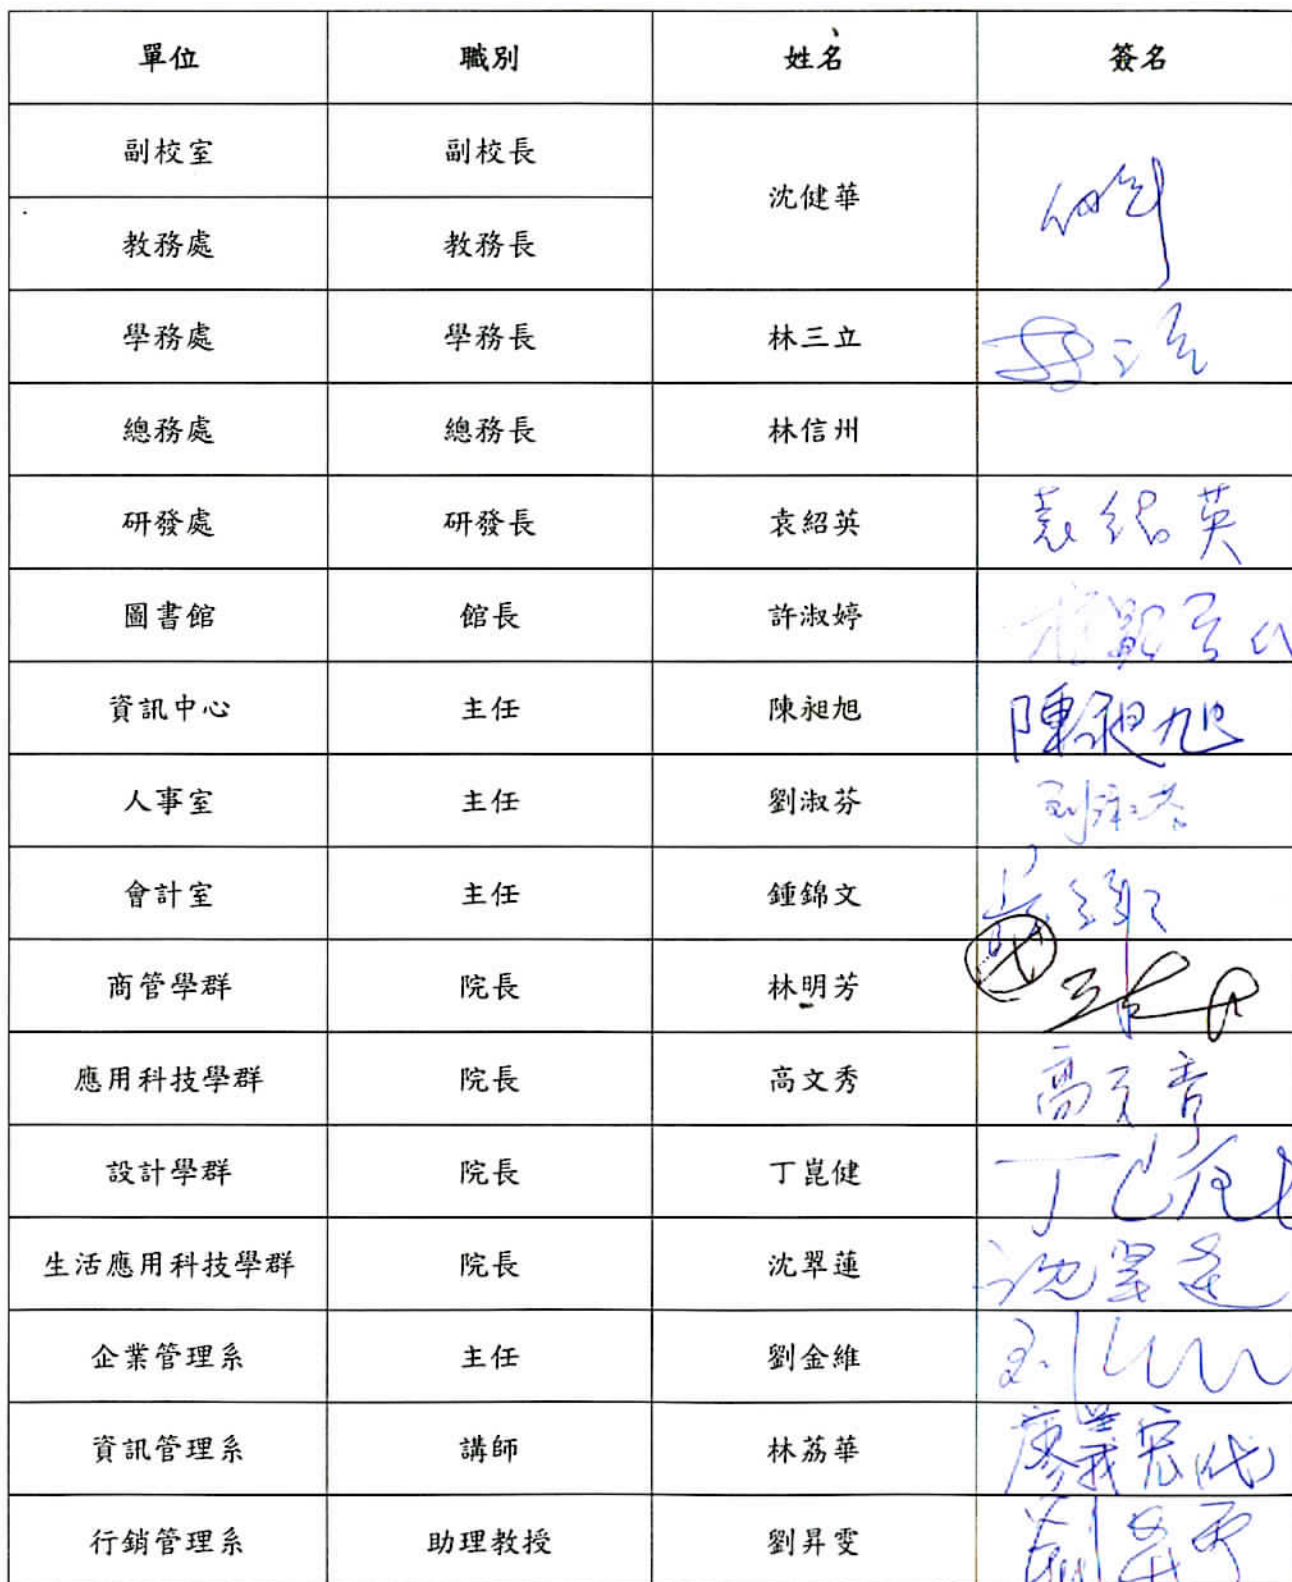 單位 職別 姓名 簽名
副校室 副校長 沈健華
教務處 教務長
學務處 學務長 林三立
總務處 總務長 林信州
研發處 研發長 袁紹英 袁紹英
圖書館 館長 許淑婷
資訊中心 主任 陳昶旭 陳昶旭
人事室 主任 劉淑芬
會計室 主任 鍾錦文
商管學群 院長 林明芳
應用科技學群 院長 高文秀 高文秀
設計學群 院長 丁崑健
生活應用科技學群 院長 沈翠蓮 沈翠蓮
企業管理系 主任 劉金維
資訊管理系 講師 林荔華 廖義宏代
行銷管理系 助理教授 劉昇雯